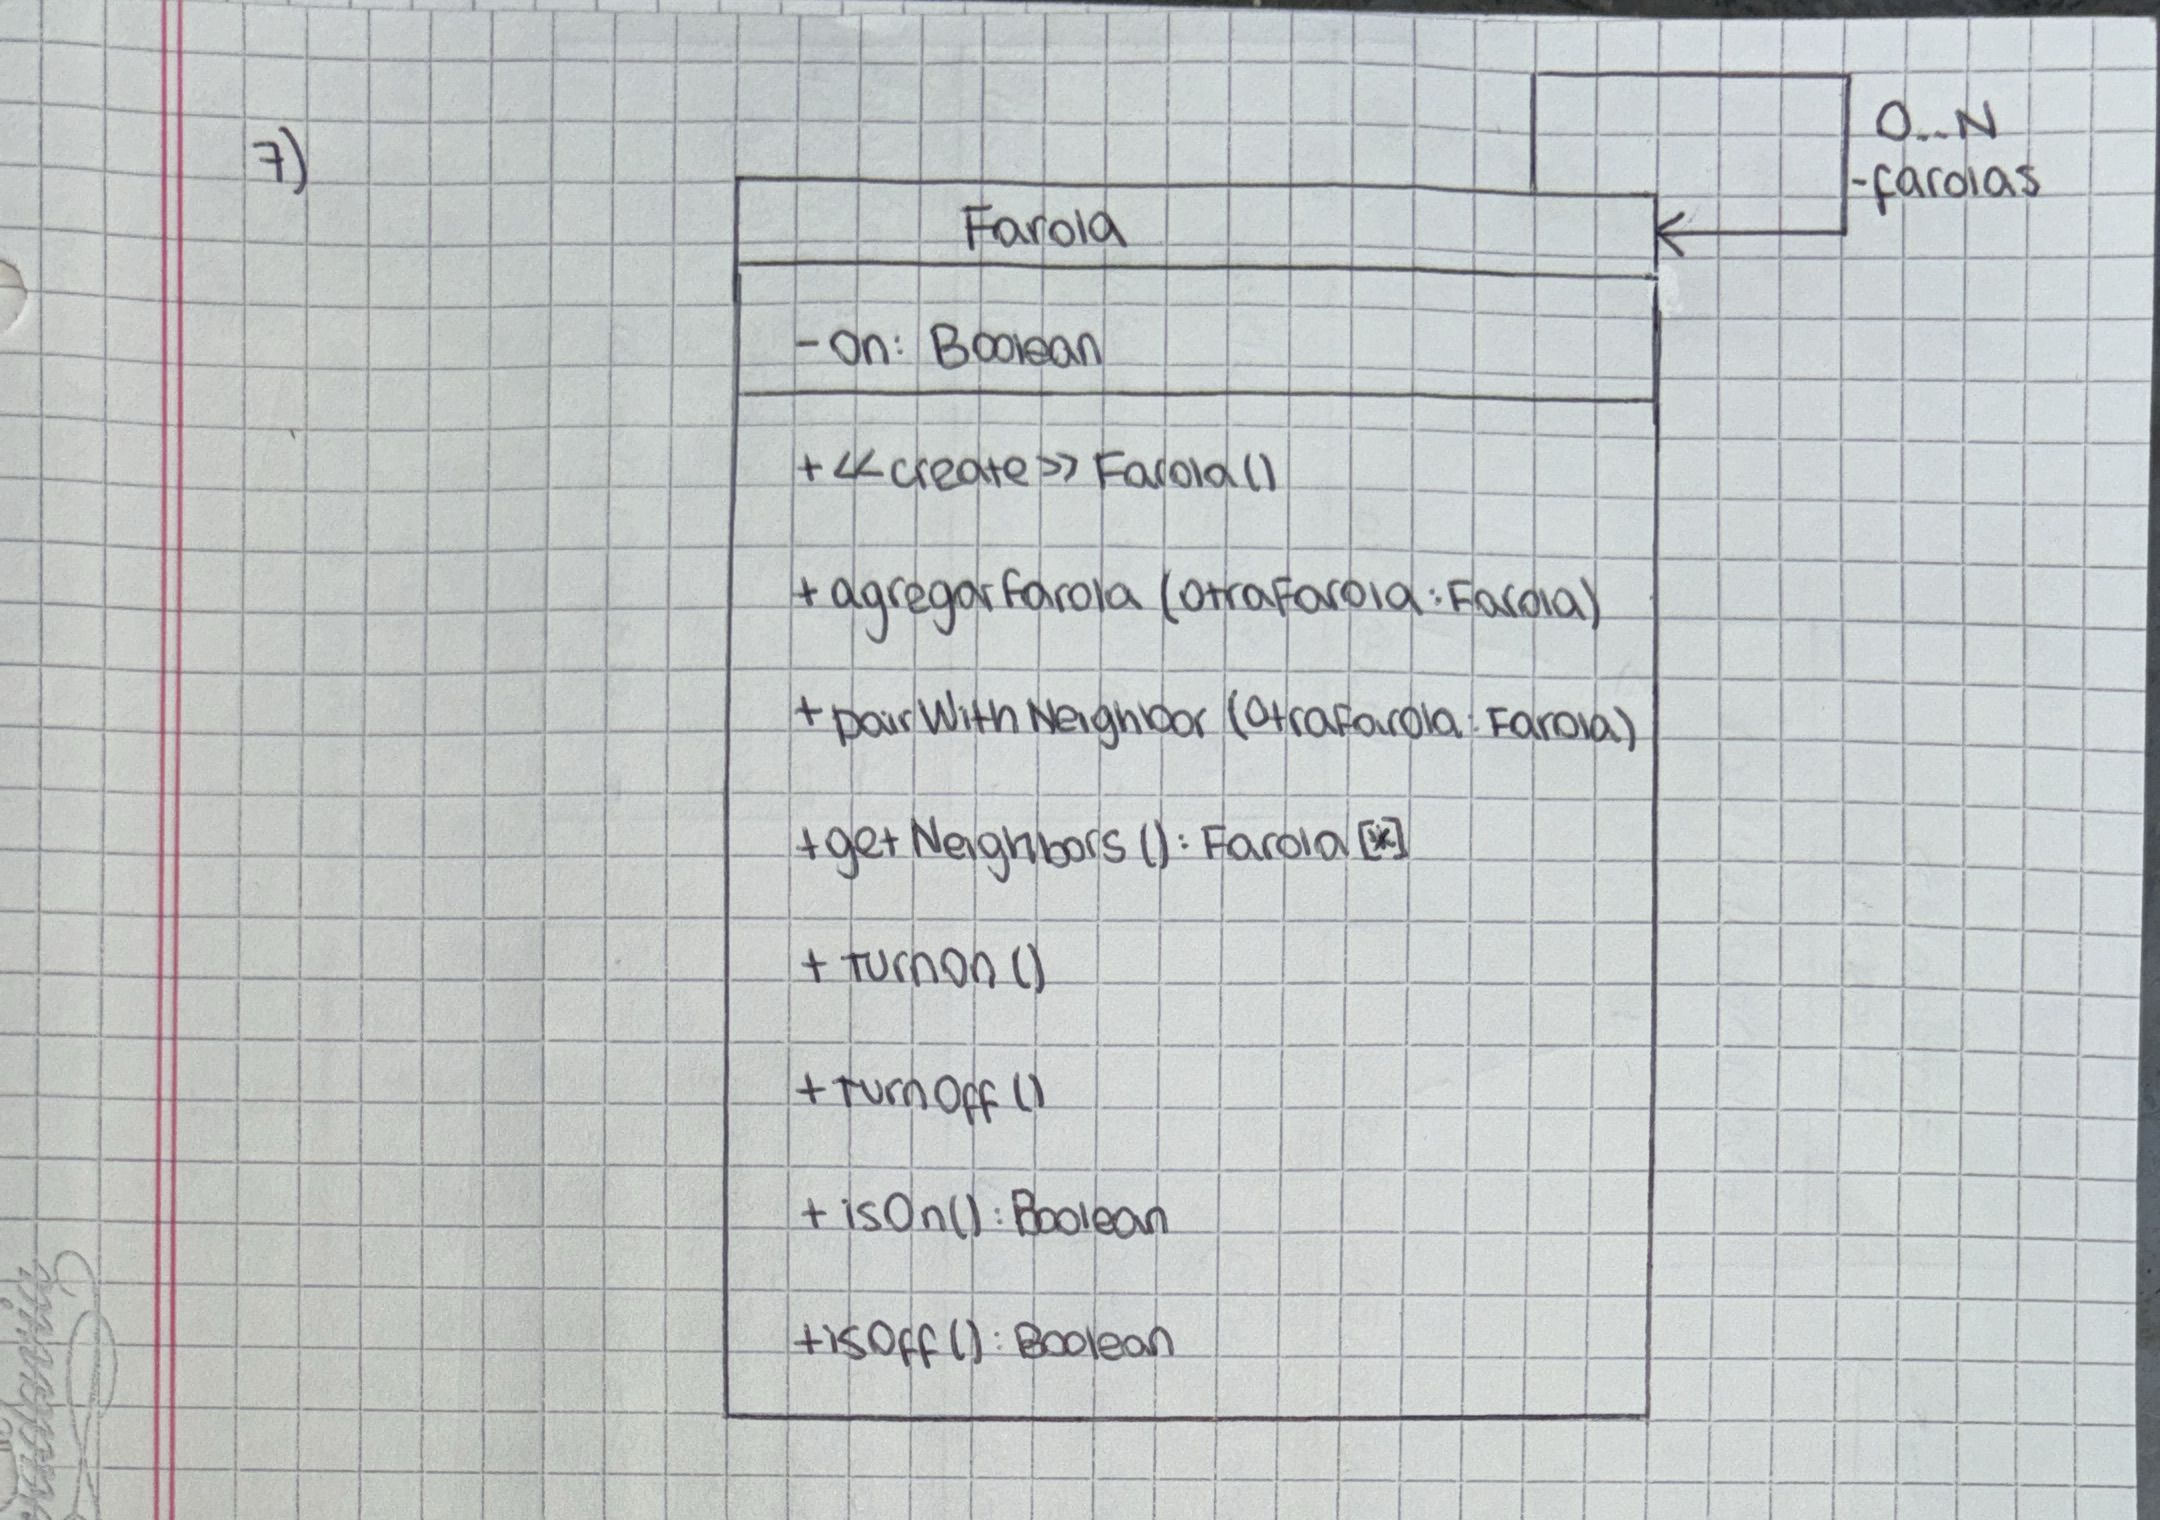 7)
0...N
-farolas
Farola
- on: Boolean
+ <<create>> Farola()
+ agregarFarola (otraFarola: Farola)
+ pairWithNeighbor (otraFarola: Farola)
+ getNeighbors (): Farola [*]
+ turnOn ()
+ turnOff ()
+ isOn(): Boolean
+ isOff(): Boolean